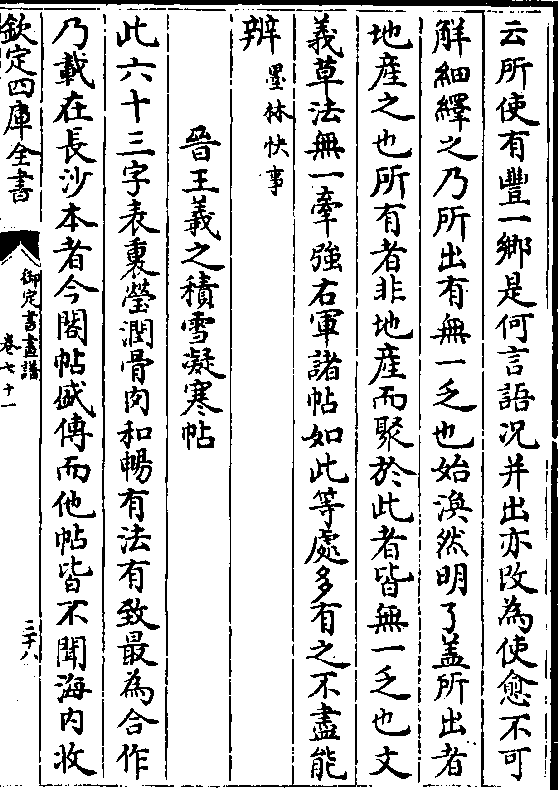 云所使有豐一鄉是何言語况并出亦改為使愈不可
解細繹之乃所出有無一乏也始渙然明了蓋所出者
地産之也所有者非地産而聚於此者皆無一乏也文
義草法無一牽強右軍諸帖如此等處多有之不盡能
辨墨林快事
晉王羲之積雪凝寒帖
此六十三字表裏瑩潤骨肉和暢有法有致最為合作
乃載在長沙本者今閣帖盛傳而他帖皆不聞海内收
欽定四庫全書
御定書畫譜
卷七十一
三十八